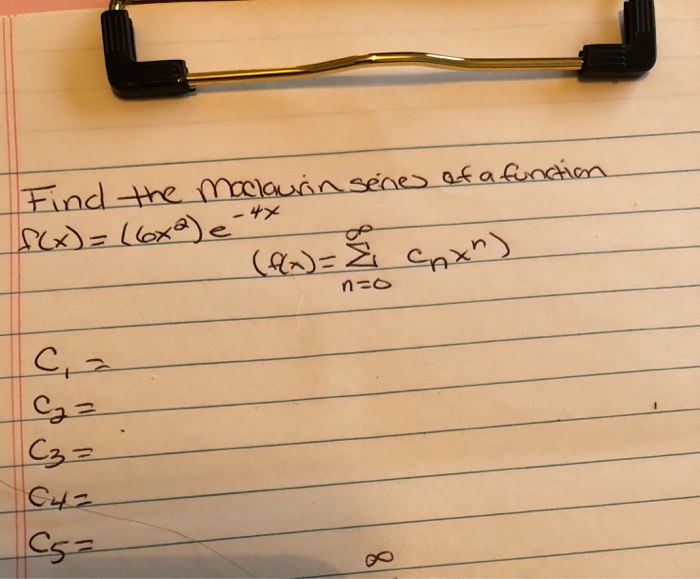 Find the Maclaurin series of a function
f(x) = (6x²) e^-4x
(f(x) = ∞ Σ n=0 cₙxⁿ)
C₁ =
C₂ =
C₃ =
C₄ =
C₅ =
∞